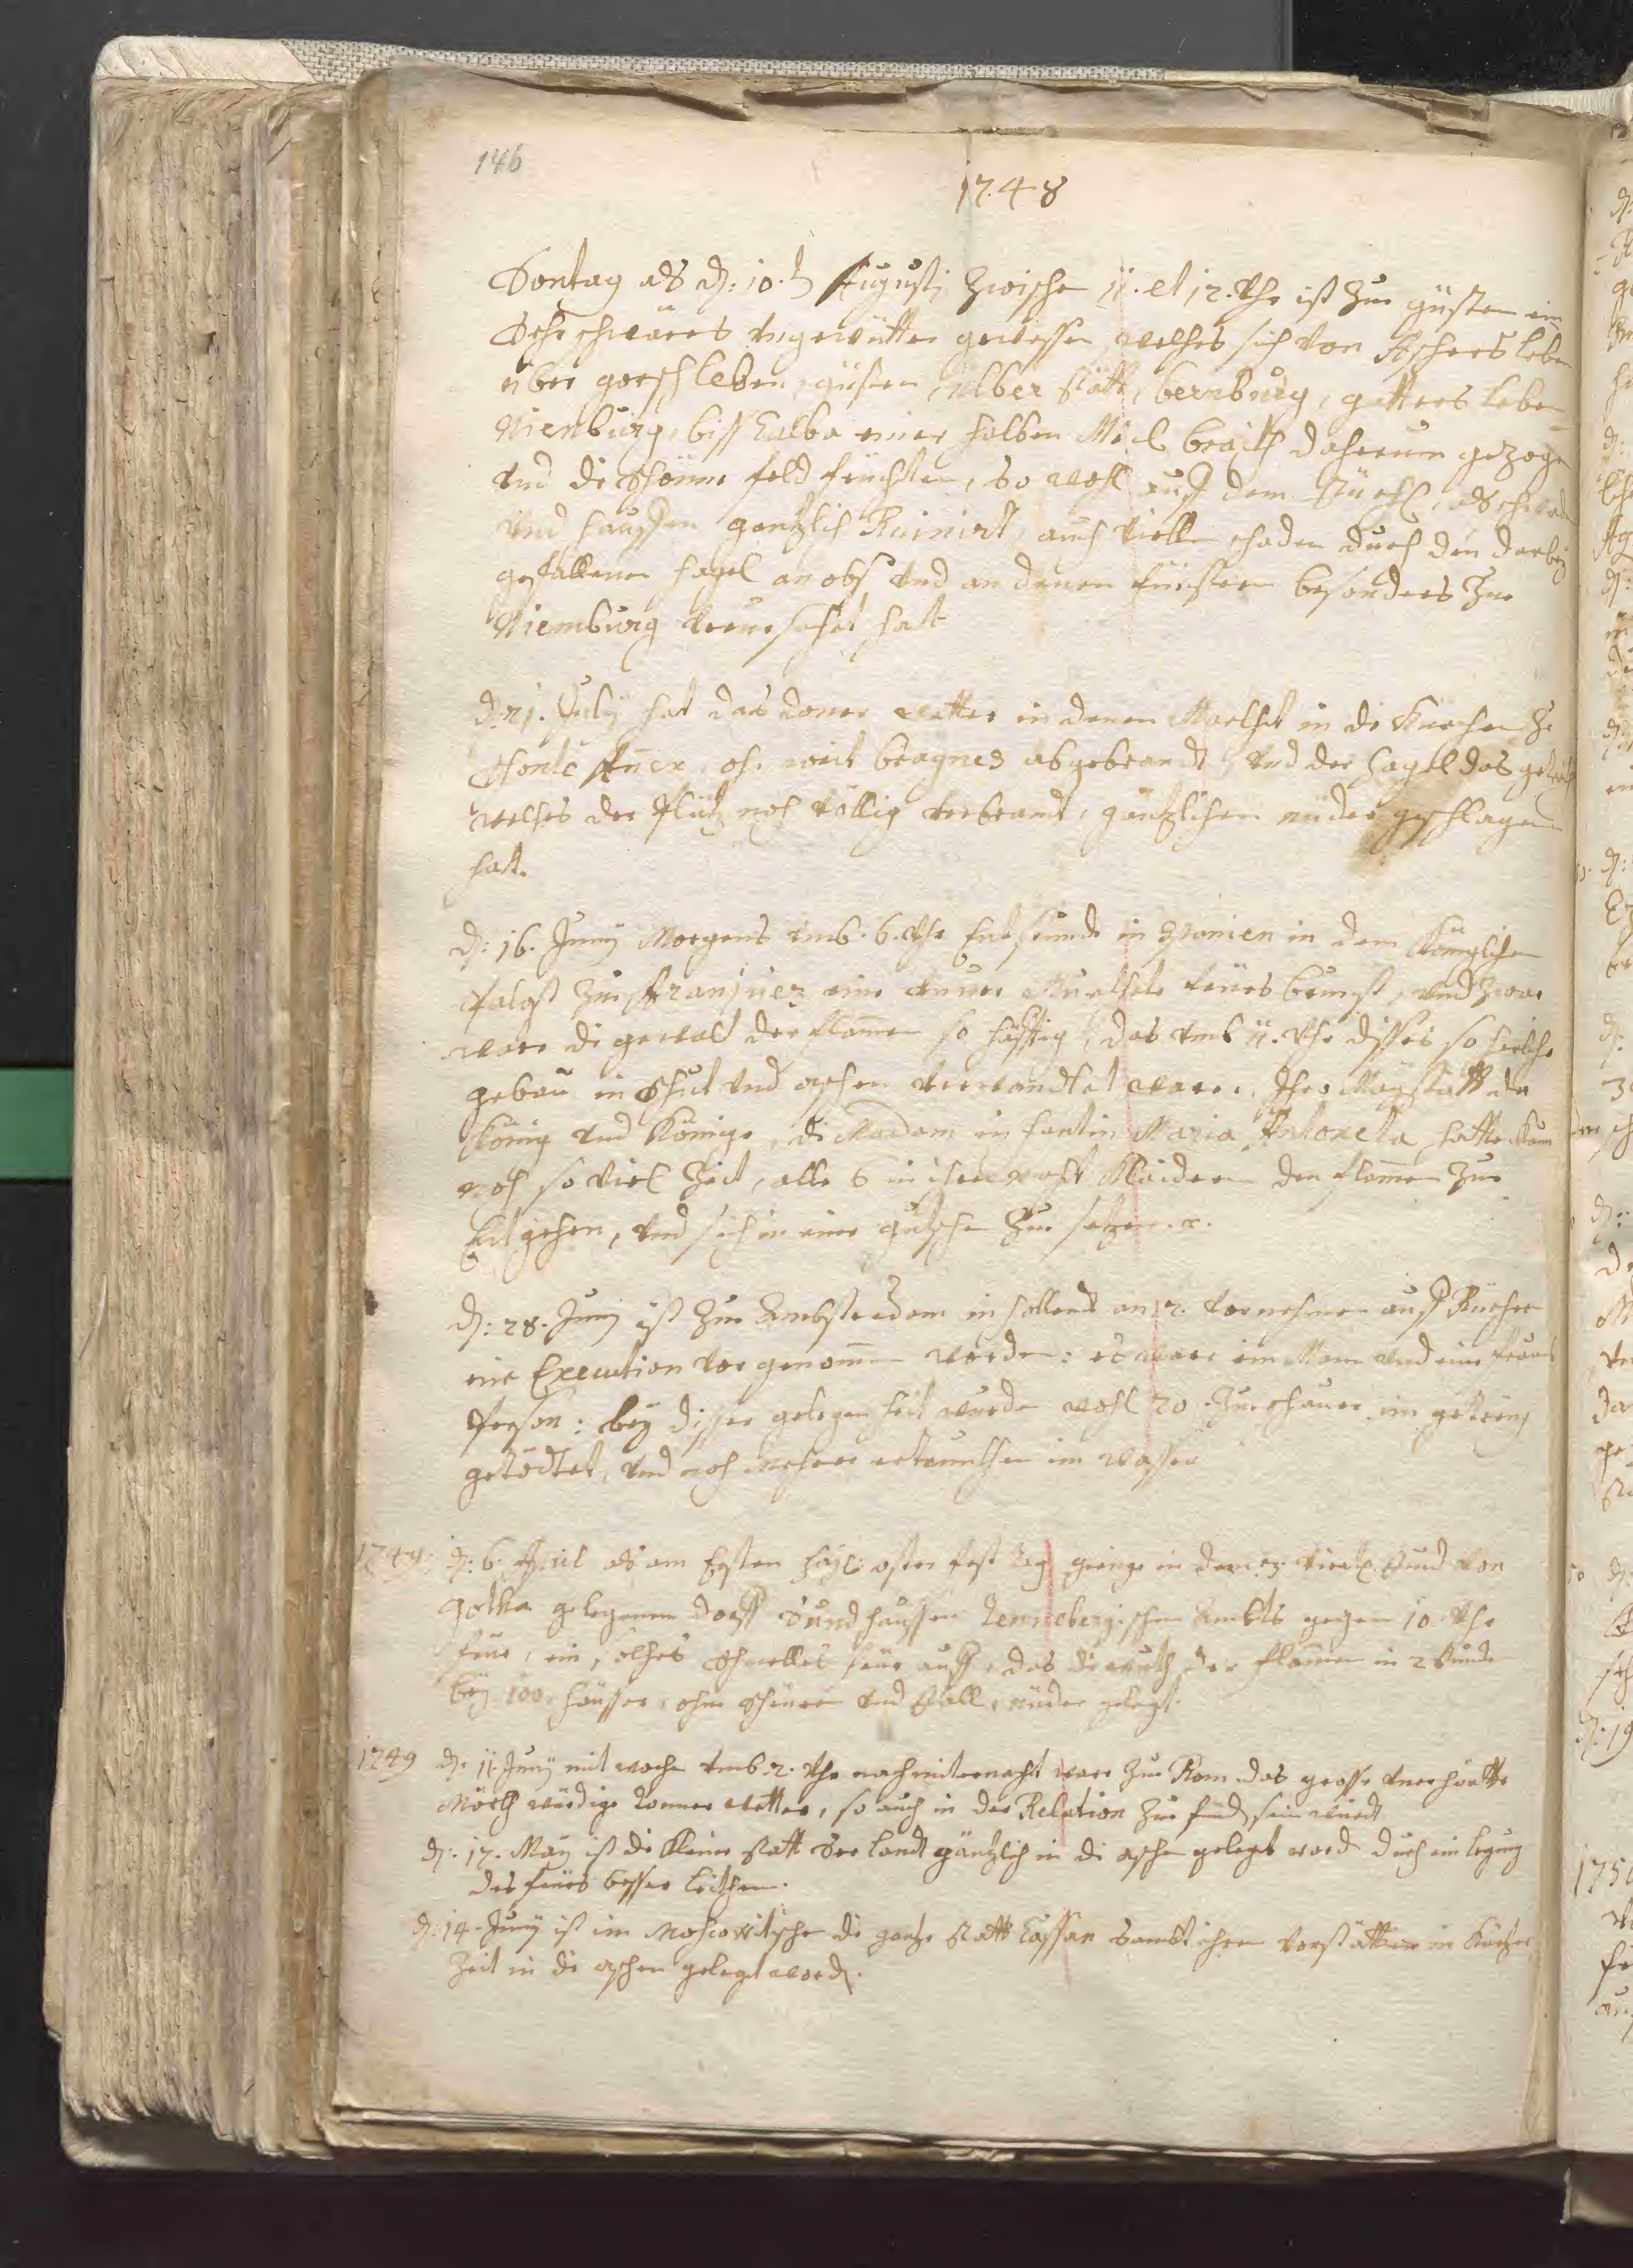 146
1748
Sontag als d: 10.t Augusti zwische 11. et 12. Uhr ist zue güsten ein
Sehr schwäres ungewütter gewessen, welches sich von Aschersleben
über gorschleben, güsten, Ilberstätt, bernburg, gattersleben
Nienburg, biss Calba einer halben Meil breith daherum gezogen
und di schönne feld früchten, so wohl auff dem stüehl, als schwaden
und hauffen gentzlich Ruinirt, auch viellen schaden durch den darbey
gefallenen hagel an obs und an denen finstern besonders zue
Niemburg verursachet hatt
d: 21. July hat das doner wetter in denen in di Kürchen ze
ohn weit abgebrandt, und der hagel das
welches der noch völlig verbrandt, gäntzlichen nüder geschlagen
hatt.
d: 16. Juny Morgens umb. 6. Uhr Entstunde in Spanien in dem Königlichen
Palast zue Aranjuez eine feürsbrunst, und zwar
ware di gewald der flamen so häfftig, das umb 11. Uhr disses so herliche
gebäu in schut und aschen verwandlet ware. Ihro Mayestätt der
König und Königin, di Madam infantin Maria Antoneta hatte kaum
noch so viel Zeit, alle 6 in ihren nacht Kleidern den flamen zue
Entgehen, und sich in eine gutschen zue setzen. r.
d: 28. Juny ist zue Ambsterdam in hollend an 2. vornehmen auff Rüehrer
eine Execution vorgenomen worden: es ware ein Mann und eine frauen
Person: bey disser gelegenheit wurden wohl 20. Zueschauer im getreng
getödtet, und noch mehrer ertrunkhen im wasser
1749. d: 6. April als am Ersten häyl: oster fest tag gienge in dem 3. viertl stund von
Gotha gelegenen dorff Sundhaussen Tennebergischen Ambts gegen 10. Uhr
frue, ein solches schnelles feür auff, das di wuth der flamen in 2 stunde
bey 100. häusser, ohne scheüren und ställ, nüder gelegt.
1749 d: 11. Juny mitwoche umb. 2. Uhr nachmiternacht ware zue Rom das grosse unerhörtte
Mörckhwürdige donnerwetter, so auch in der Relation zue find sein würdt
d: 17. May ist di Kleine statt gäntzlich in di aschen gelegt word durch ein legung
des feürs besser leithen.
d: 14. Juny ist im Moscowitische di gantze statt Cassan sambt ihren vorstätten in Kürtzer
Zeit in di aschen gelegt word.